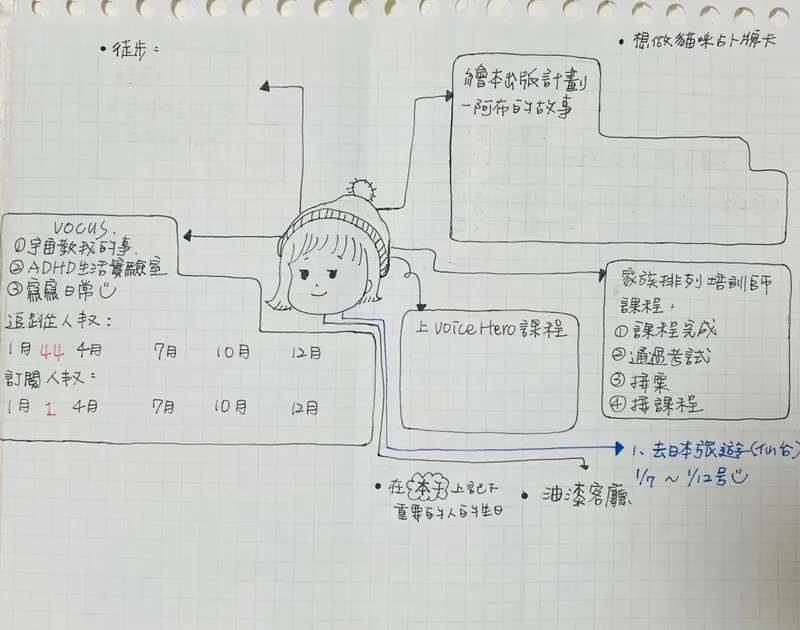 • 徒步：
• 想做貓咪占卜牌卡
繪本出版計劃
－阿布的故事
VOCUS.
①宇宙教我的事.
②ADHD生活實驗室
③寫寫日常
追蹤人數：
1月 44 4月 7月 10月 12月
訂閱人數：
1月 1 4月 7月 10月 12月
上 Voice Hero 課程
家族排列培訓師
課程：
①課程完成
②通過考試
③接案
④接課程
1、去日本旅遊(仙台)
1/7 ~ 1/12号
• 在本子上記下
重要的人的生日
• 油漆客廳